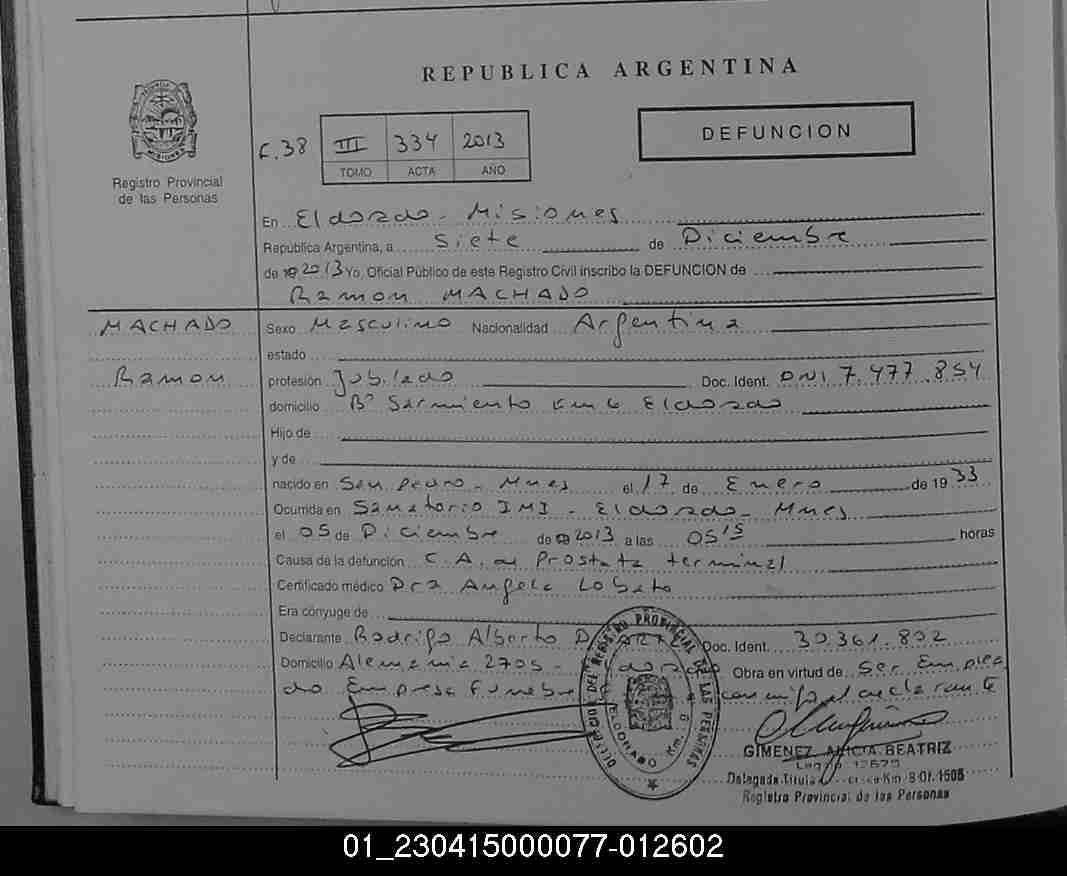 REPUBLICA ARGENTINA
MISIONES
Registro Provincial
de las Personas
F.38 III 334 2013
TOMO ACTA AÑO
DEFUNCION
En El dorado - Misiones
República Argentina, a siete de Diciembre
de 2013 Yo, Oficial Público de este Registro Civil inscribo la DEFUNCION de
Ramon MACHADO
MACHADO
Ramon
Sexo Masculino Nacionalidad Argentina
estado
profesión Jubilado Doc. Ident. DNI 7.477.854
domicilio Bº Sarmiento Km 6 Eldorado
Hijo de
y de
nacido en San Pedro - Mnes el 17 de Enero de 1933
Ocurrida en Sanatorio IMI - Eldorado - Mnes
el 05 de Diciembre de 2013 a las 05¹⁵ horas
Causa de la defunción C.A. de Prostata terminal
Certificado médico Dra Angela Lobato
Era cónyuge de
Declarante Rodrigo Alberto Doc. Ident. 30.361.802
Domicilio Alemania 2705 - Eldorado Obra en virtud de Ser Emplea
do Empresa Funebre
DELEGACION DEL REGISTRO PROVINCIAL DE LAS PERSONAS
ELDORADO Km. 8
GIMENEZ ALICIA BEATRIZ
Legajo
Delegada Titular Km. 8 Of. 1505
Registro Provincial de las Personas
01_230415000077-012602